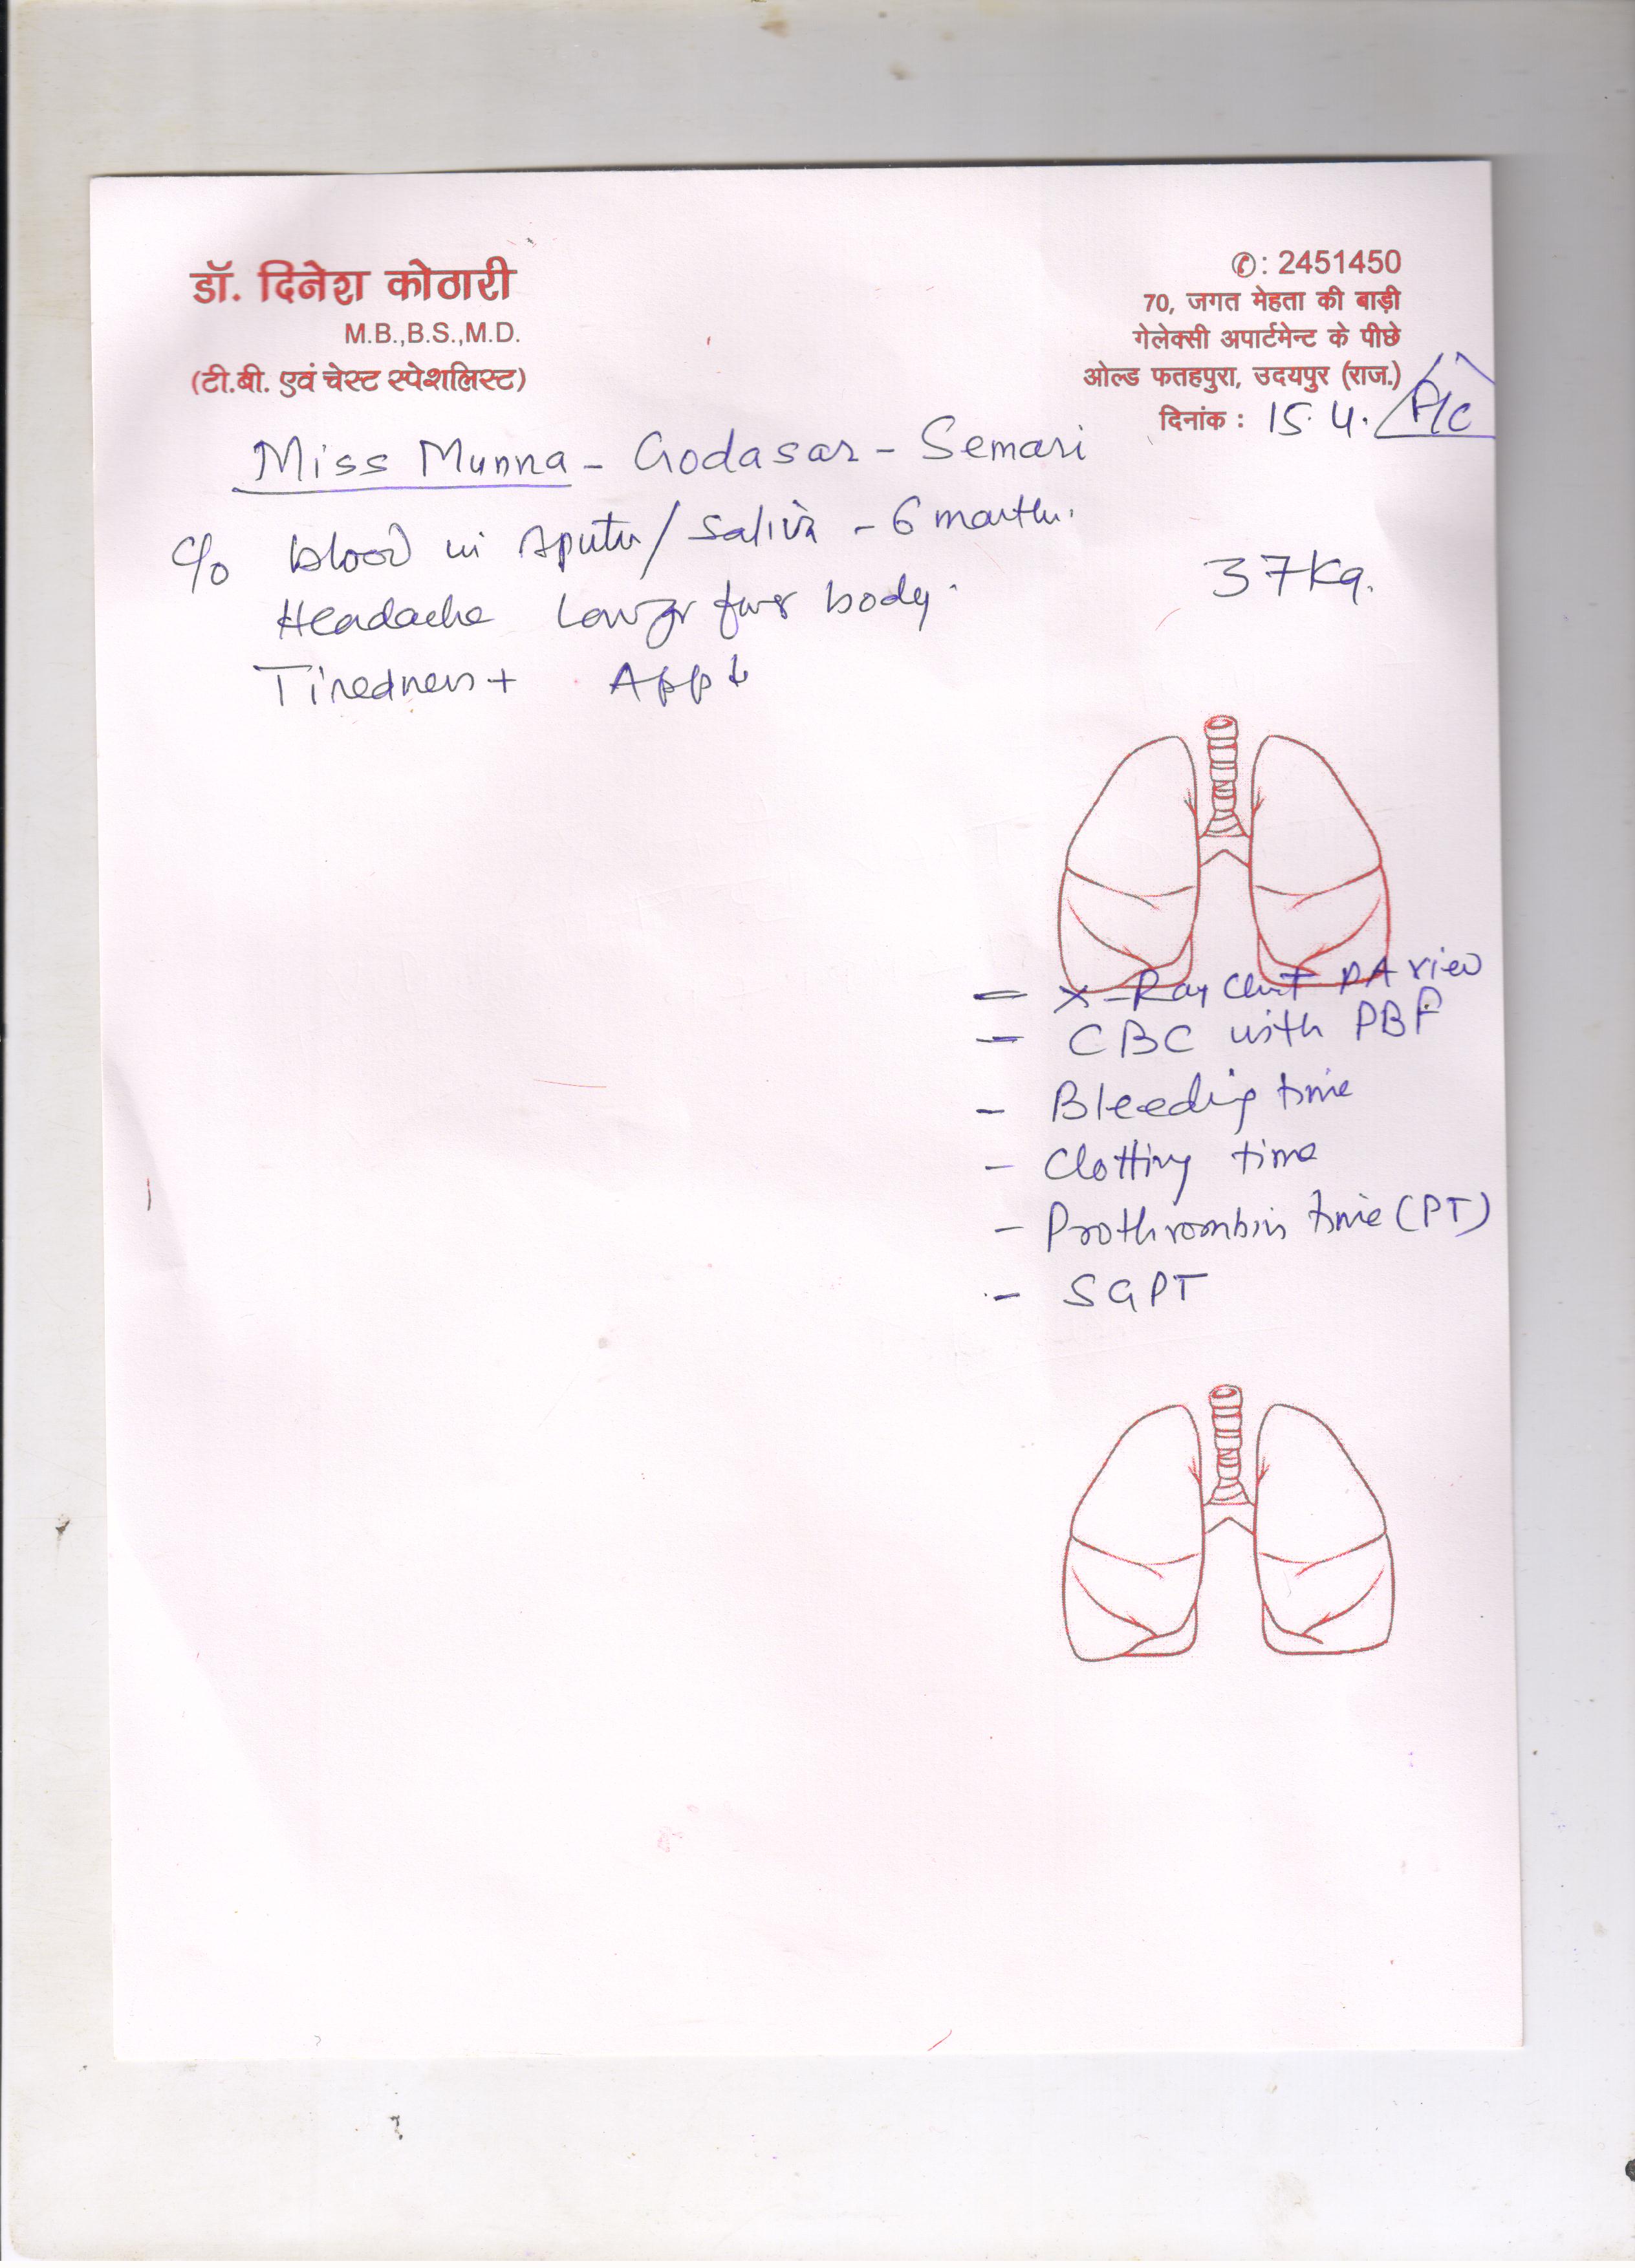 डॉ. दिनेश कोठारी
M.B.,B.S.,M.D.
(टी.बी. एवं चेस्ट स्पेशलिस्ट)
✆: 2451450
70, जगत मेहता की बाड़ी
गेलेक्सी अपार्टमेन्ट के पीछे
ओल्ड फतहपुरा, उदयपुर (राज.)
दिनांक : 15.4.
Miss Munna - Godasar - Semari
c/o blood in sputum / saliva - 6 months.
37 Kg.
Headache body.
Tiredness + App ↓
- X-Ray Chest PA view
- CBC with PBF
- Bleeding time
- Clotting time
- Prothrombin time (PT)
- SGPT